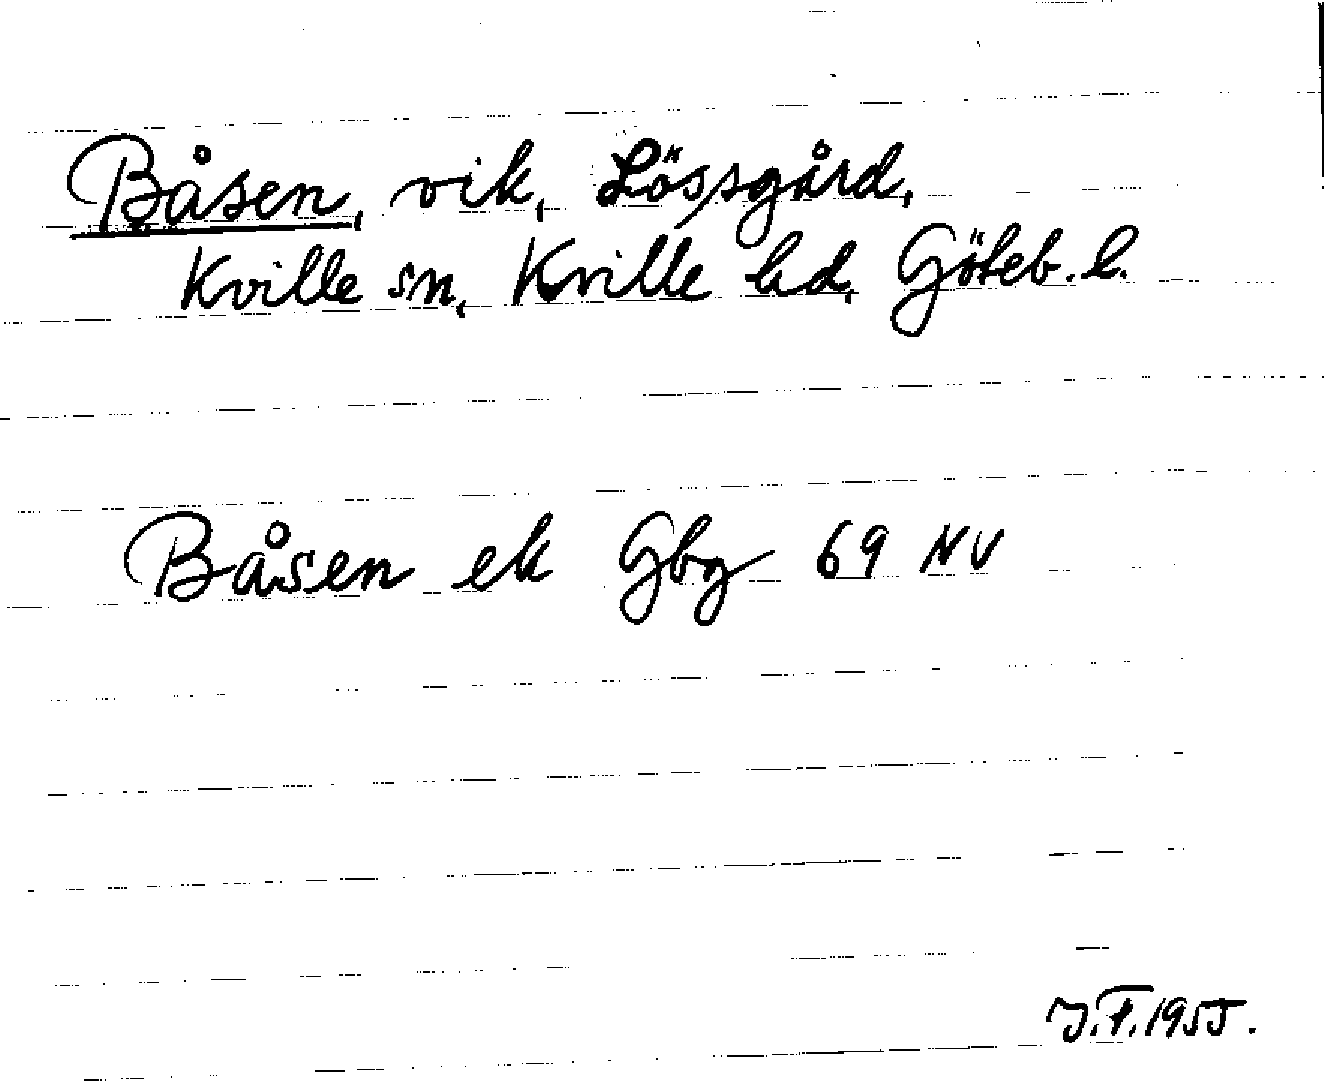 Båsen, vik, Lössgård,
Kville sn, Kville hd, Göteb. l.
Båsen ek Gbg 69 NV
J.F. 1955.